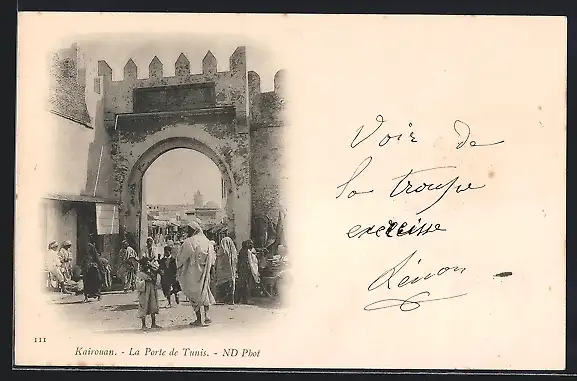 Voir de
la troupe
111
Kairouan. - La Porte de Tunis. - ND Phot